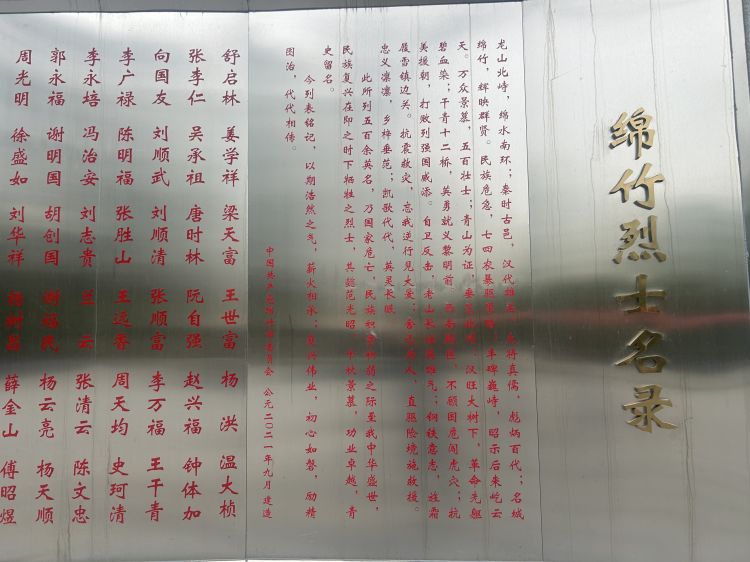 绵竹烈士名录
龙山北峙,绵水南环;秦时古邑,汉代雄 名将真儒,彪炳百代;名城
绵竹,辉映群贤。民族危急,七四农暴 丰碑巍峙,昭示后来屹云
天。万众景慕,五百壮士;青山为证, 汉旺大树下,革命先躯
碧血染;干青十二桥,英勇就义黎明前。西南 不顾困危闯虎穴;抗
美援朝,打败列强国威添。自卫反击,老山长 雄气;钢铁意志,雄霜
履雪镇边关。抗震救灾,忘我逆行见大爱; 直驱险境施救援。
忠义凛凛,乡梓垂范;凯歌代代,英灵长眠。
此所列五百余英名,乃国家危亡,民族积 之际至我中华盛世,
民族复兴在即之时下牺牲之烈士,其懿范光昭,千秋景慕,功业卓越,青
史留名。
今到表铭记,以期浩然之气,薪火相承;复兴伟业,初心如磐,励精
图治,代代相传。
中国共产党绵竹市委员会 公元二〇二一年九月建造
舒启林 姜学祥 梁天富 王世富 杨洪 温大桢
张李仁 吴承祖 唐时林 阮自强 赵兴福 钟体加
向国友 刘顺武 刘顺清 张顺富 李万福 王干青
李广禄 陈明福 张胜山 王远香 周天均 史珂清
李永培 冯治安 刘志贵 兰云 张清云 陈文忠
郭永福 谢明国 胡创国 谢福民 杨云亮 杨天顺
周光明 徐盛如 刘华祥 树昌 薛金山 傅昭煜